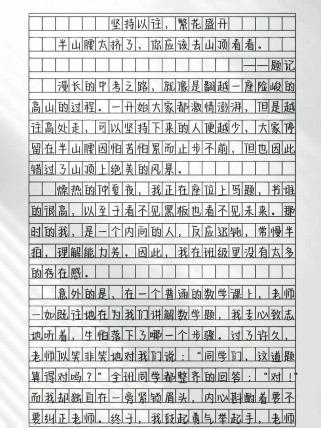 坚持以往，繁花盛开
半山腰太挤了，你应该去山顶看看。
——题记
漫长的中考之路，就像是翻越一座险峻的
高山的过程。一开始大家都激情澎湃，但是越
往高处走，可以坚持下来的人便越少，大家停
留在半山腰因怕苦怕累而止步不前，但也因此
错过了山顶上绝美的风景。
燥热的仲夏夜，我正在座位上写题，书堆
的很高，以至于看不见黑板也看不见未来。那
时的我，是一个内向的人，反应迟钝，常慢半
拍，理解能力差。因此，我在班级里没有太多
的存在感。
意外的是，在一个普通的数学课上，老师
一如既往地在为我们讲解数学题，我专心致志
地听着，生怕落下了哪一个步骤。过了许久，
老师似笑非笑地对我们说："同学们，这道题
算得对吗？"全班同学都整齐的回答："对！"
而我却独自在一旁紧锁眉头，内心斟酌着要不
要纠正老师。终于，我鼓起勇气举起手，老师